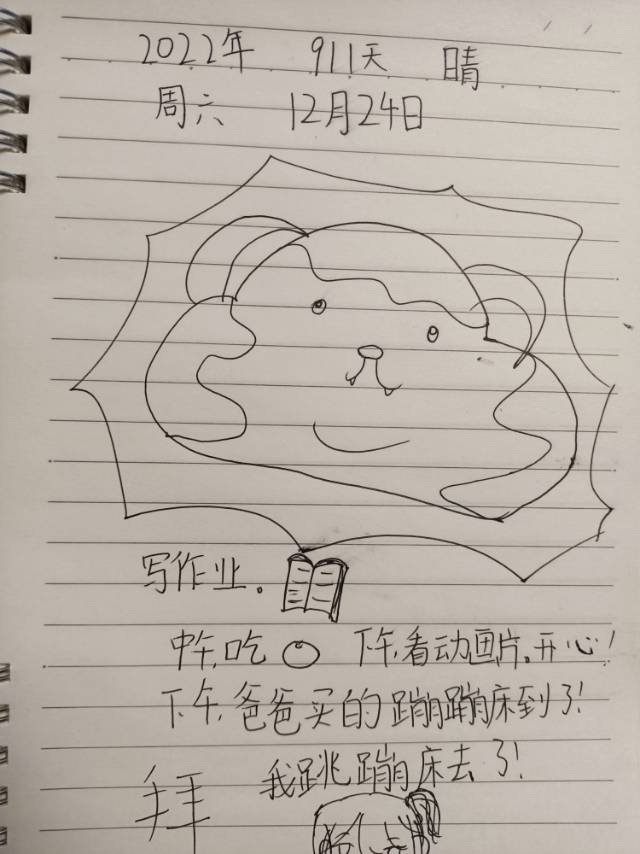 2022年 911天 晴
周六 12月24日
写作业。
中午,吃 下午,看动画片。开心!
下午,爸爸买的蹦蹦床到了!
我跳蹦床去了!
拜